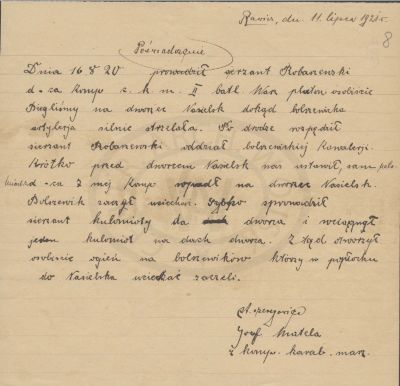 Rawicz, dnia 11. lipca 1921 r.
8
Poświadczenie
Dnia 16 8 20 prowadził serżant Robaszewski
d-ca komp c. k. m. II batl. War. pluton osobiście
Biegliśmy na dworzec Nasielsk dokąd bolszewicka
artylerja silnie strzelała. Po drodze wspędził
sierżant Robaszewski oddział bolszewickiej Kawalerji.
Krótko przed dworcem Nasielsk nas ustawił, sam
z mej komp wpadł na dworzec Nasielsk.
Bolszewik zaczął uciechać. Szybko sprowadził
sierżant kulomioty do dworca i wciągnął
jeden kulomiot na dach dworca. Z tąd otworzył
osobiście ogień na bolszewików którzy w popłochu
do Nasielska uciekać zaczeli.
st. szeregowiec
Józef Matela
z komp. karab. masz.